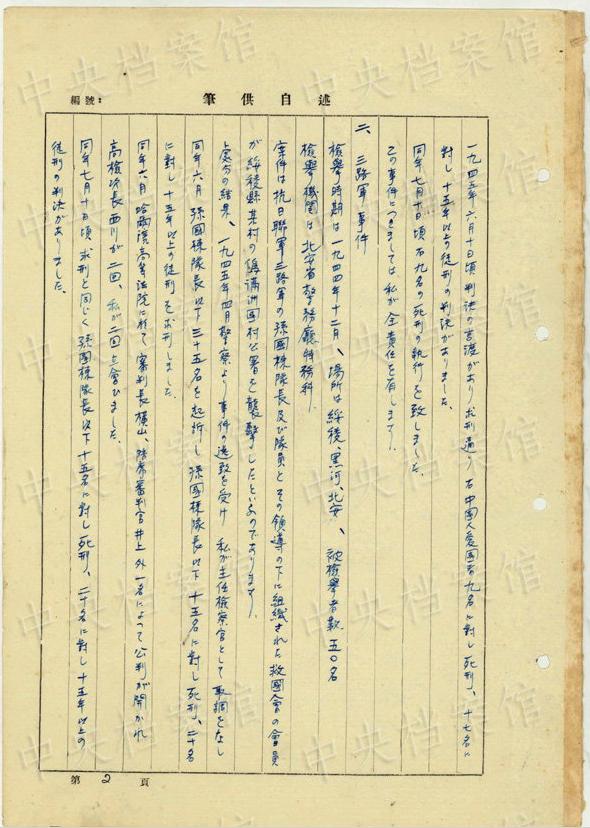 述自供筆
編號：
一九四五年六月十日頃判決の言渡があり求刑通り右中國人愛國者九名に対し死刑、十七名に
対し十五年以上の徒刑の判決がありました。
同年七月十日頃右九名の死刑の執行を致しました。
この事件につきましては、私が全責任を有します。
二、三路軍事件
檢擧時期は一九四四年十二月、場所は綏稜、黒河、北安、被檢擧者数五〇名
檢擧機関は、北安省警務廳特務科、
案件は抗日聯軍三路軍の孫國棟隊長及び隊員とその領導の下に組織された救國会の會員
が綏稜縣某村の偽滿洲國村公署を襲撃したというのであります。
処分の結果、一九四五年四月警察より事件の送致を受け私が主任檢察官として取調をなし
同年六月孫國棟隊長以下三十五名を起訴し孫國棟隊長以下十五名に對し死刑、二十名
に對し十五年以上の徒刑を求刑しました。
同年六月哈爾濱高等法院に於て審判長横山、陪席審判官井上外一名によって公判が開かれ
高檢次長西川が一回、私が二回立會ひました。
同年七月十日頃求刑と同じく孫國棟隊長以下十五名に對し死刑、二十名に對し十五年以上の
徒刑の判決がありました。
第2頁
中央档案馆